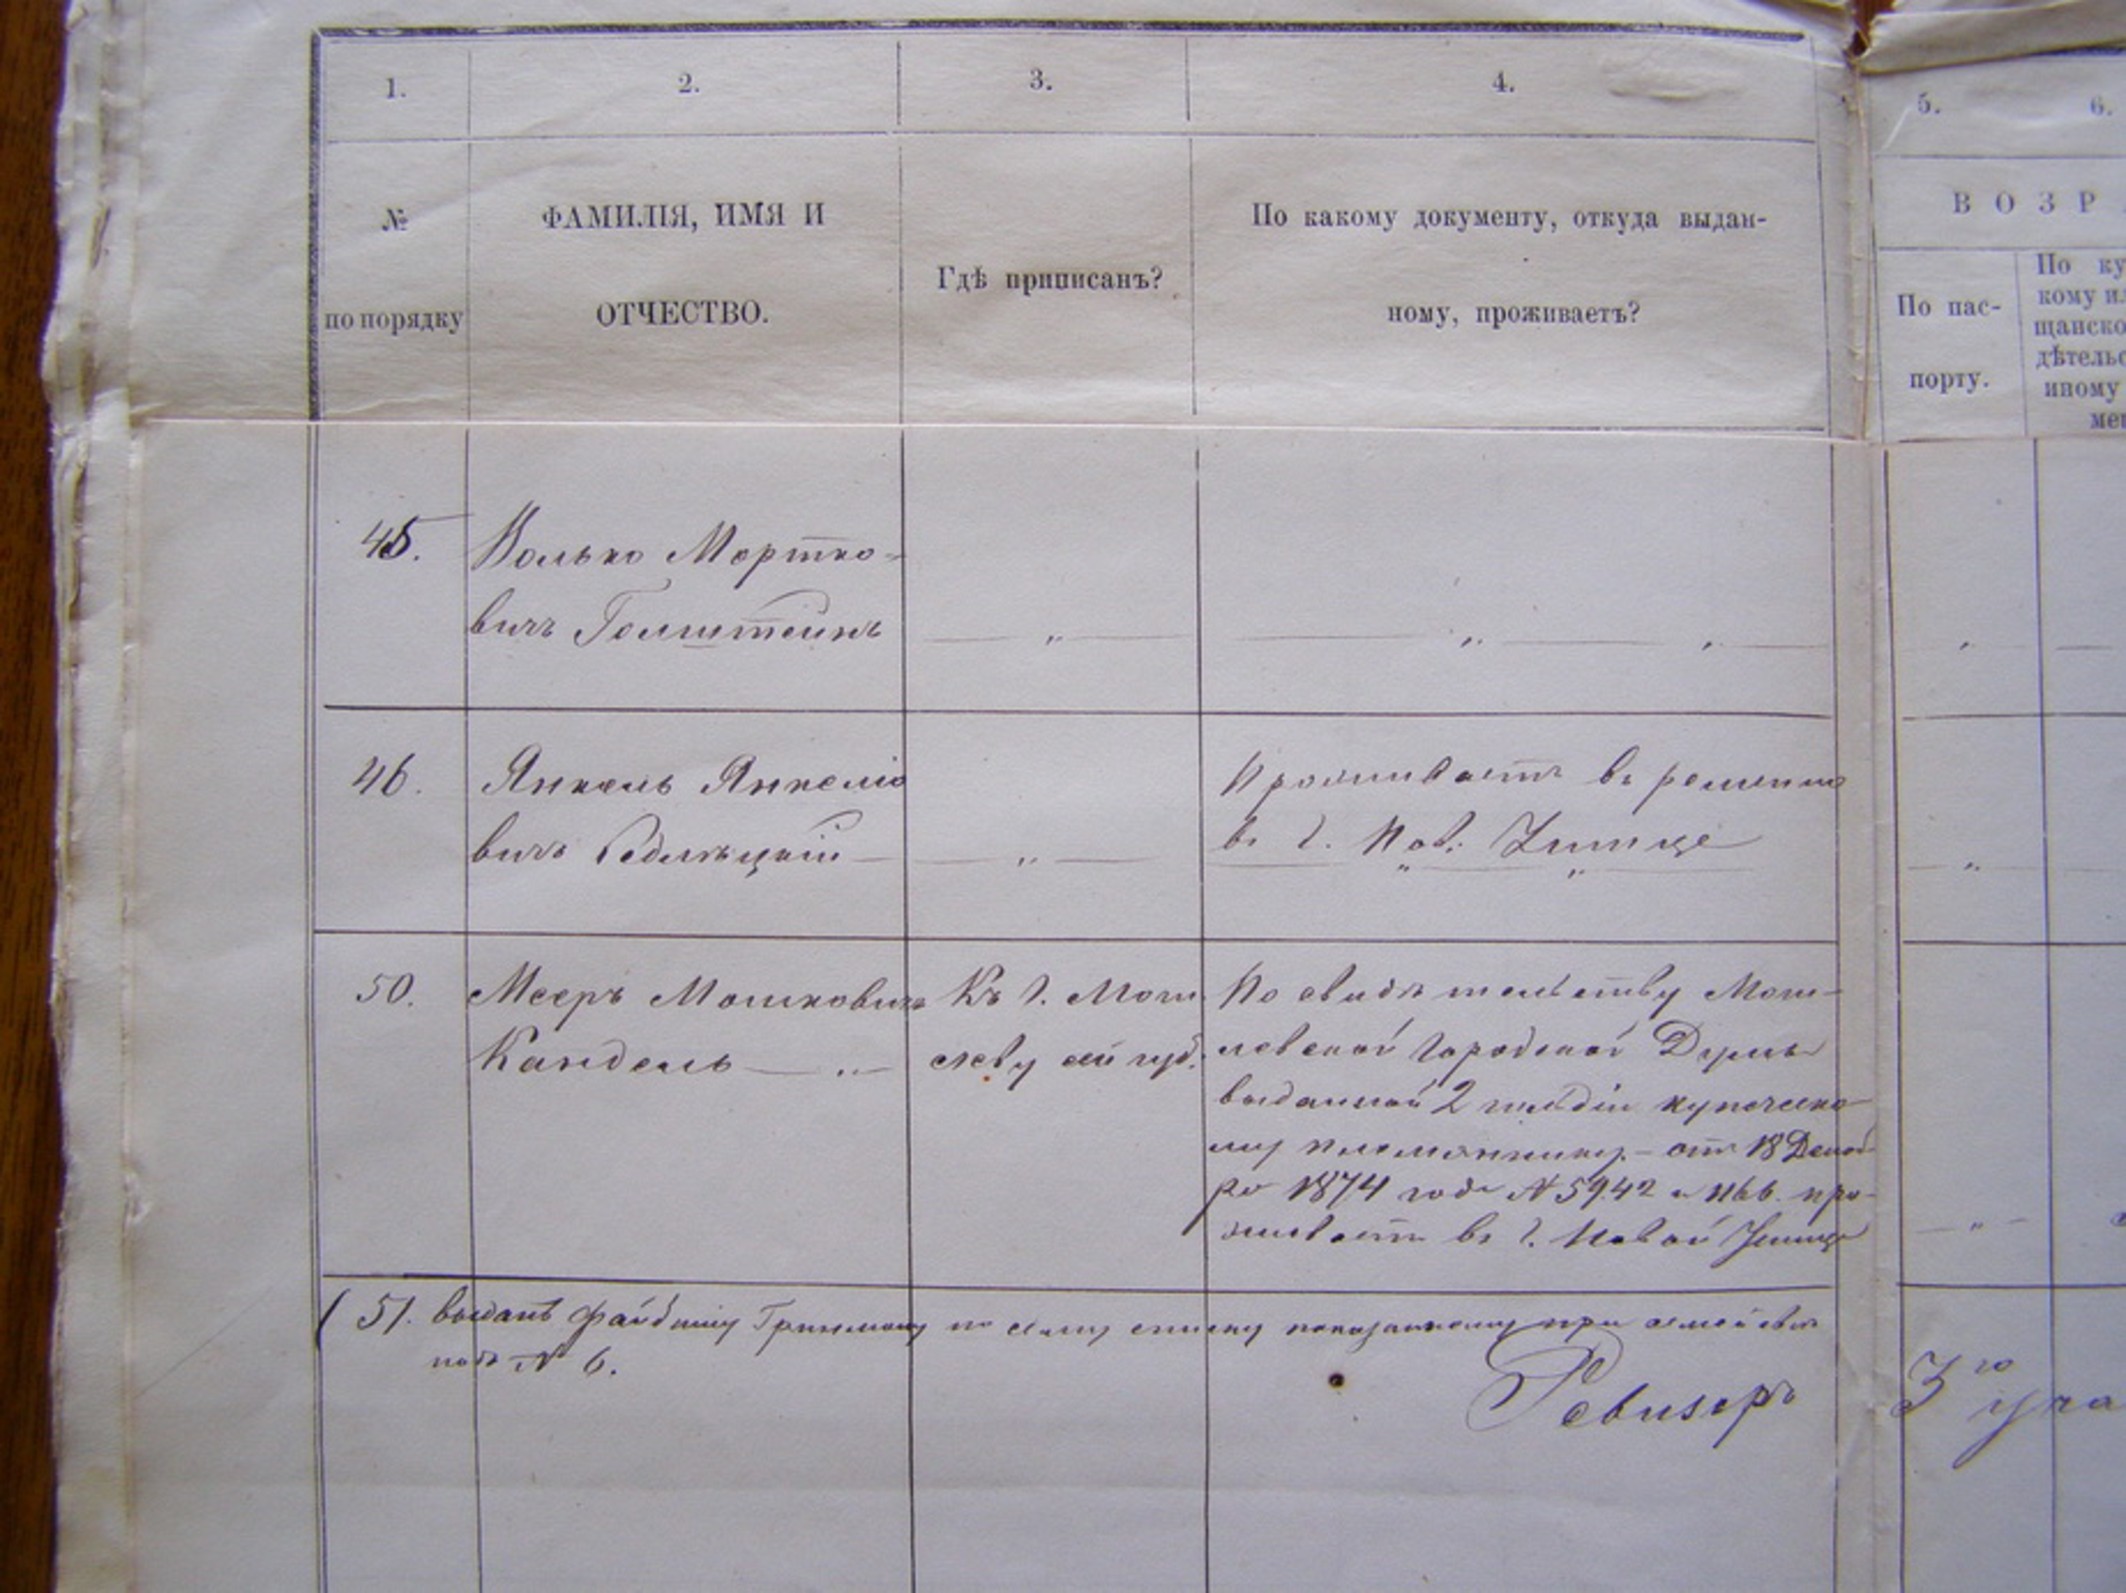 1. 2. 3. 4. 5. 6.
№
по порядку
ФАМИЛІЯ, ИМЯ И
ОТЧЕСТВО.
Гдѣ приписанъ?
По какому документу, откуда выдан-
ному, проживаетъ?
ВОЗР
По пас-
порту.
По ку
кому ил
щанско
дѣтельс
иному
мен
45. Волько Мортко-
вичъ Голштейнъ
46. Янкель Янкеліо
вичъ
Проживаетъ въ
въ г. Нов. Ушице
50. Мееръ Мошковичъ
Кандель
Къ г. Моги
леву сей губ.
По свидѣтельству Моги-
левской Городской Думы
выданной 2 гильдіи купеческо-
му племяннику - отъ 18 Декаб
ря 1874 года № 5942 и
живаетъ въ г. Новой Ушице
51. выданъ Файбишу Гринману по сему списку показанному при семействѣ
подъ № 6.
Ревизоръ
3го уча